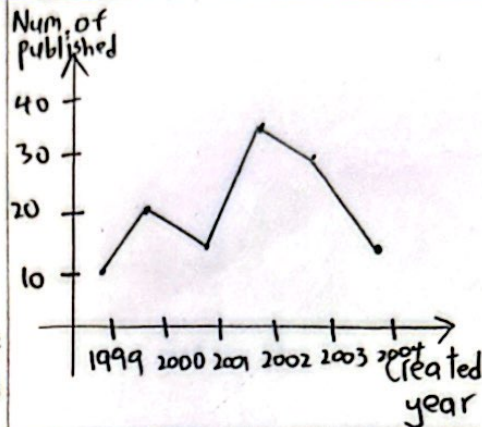 Num. of
published
40
30
20
10
1999 2000 2001 2002 2003 2004
Created
year